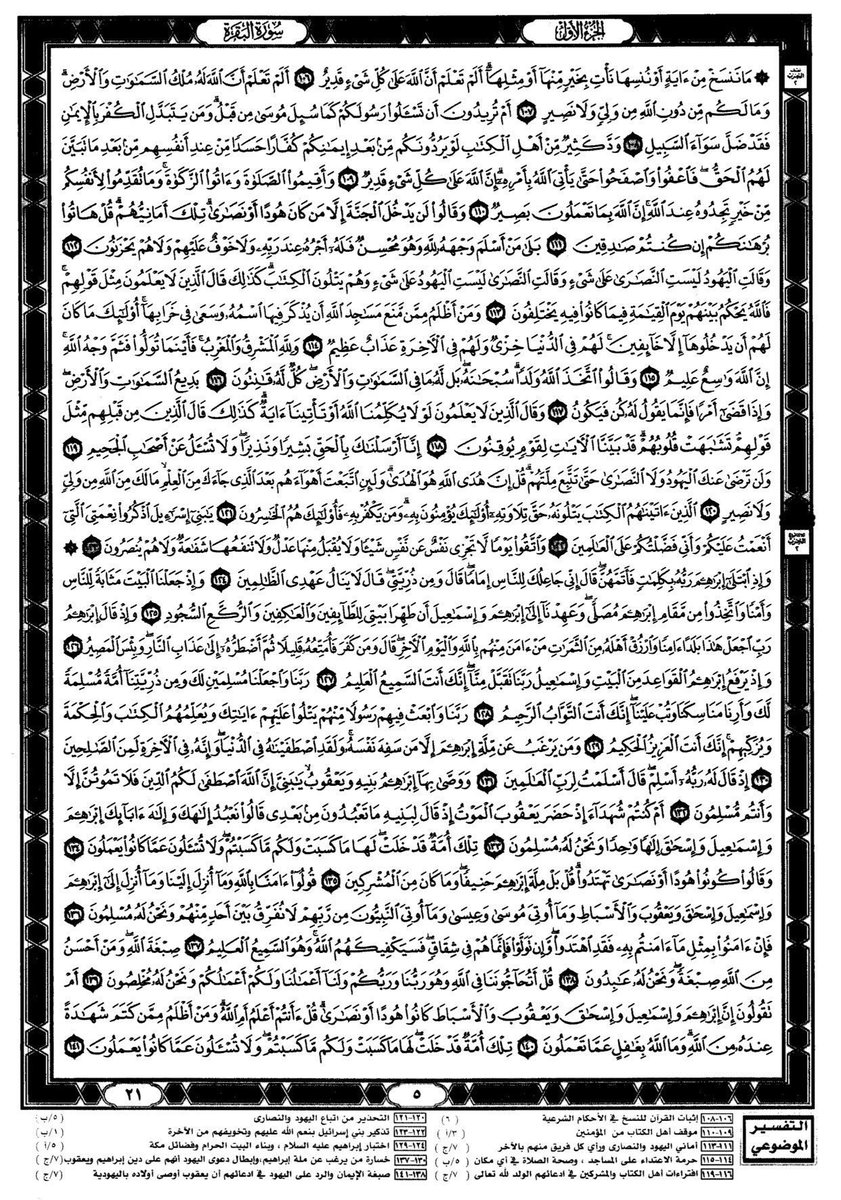 الجزء الأول
سورة البقرة
۞ مَا نَنسَخْ مِنْ ءَايَةٍ أَوْ نُنسِهَا نَأْتِ بِخَيْرٍ مِّنْهَآ أَوْ مِثْلِهَآ ۗ أَلَمْ تَعْلَمْ أَنَّ ٱللَّهَ عَلَىٰ كُلِّ شَىْءٍ قَدِيرٌ ١٠٦ أَلَمْ تَعْلَمْ أَنَّ ٱللَّهَ لَهُۥ مُلْكُ ٱلسَّمَٰوَٰتِ وَٱلْأَرْضِ ۗ
وَمَا لَكُم مِّن دُونِ ٱللَّهِ مِن وَلِىٍّ وَلَا نَصِيرٍ ١٠٧ أَمْ تُرِيدُونَ أَن تَسْـَٔلُوا۟ رَسُولَكُمْ كَمَا سُئِلَ مُوسَىٰ مِن قَبْلُ ۗ وَمَن يَتَبَدَّلِ ٱلْكُفْرَ بِٱلْإِيمَٰنِ
فَقَدْ ضَلَّ سَوَآءَ ٱلسَّبِيلِ ١٠٨ وَدَّ كَثِيرٌ مِّنْ أَهْلِ ٱلْكِتَٰبِ لَوْ يَرُدُّونَكُم مِّنۢ بَعْدِ إِيمَٰنِكُمْ كُفَّارًا حَسَدًا مِّنْ عِندِ أَنفُسِهِم مِّنۢ بَعْدِ مَا تَبَيَّنَ
لَهُمُ ٱلْحَقُّ ۖ فَٱعْفُوا۟ وَٱصْفَحُوا۟ حَتَّىٰ يَأْتِىَ ٱللَّهُ بِأَمْرِهِۦٓ ۗ إِنَّ ٱللَّهَ عَلَىٰ كُلِّ شَىْءٍ قَدِيرٌ ١٠٩ وَأَقِيمُوا۟ ٱلصَّلَوٰةَ وَءَاتُوا۟ ٱلزَّكَوٰةَ ۚ وَمَا تُقَدِّمُوا۟ لِأَنفُسِكُم
مِّنْ خَيْرٍ تَجِدُوهُ عِندَ ٱللَّهِ ۗ إِنَّ ٱللَّهَ بِمَا تَعْمَلُونَ بَصِيرٌ ١١٠ وَقَالُوا۟ لَن يَدْخُلَ ٱلْجَنَّةَ إِلَّا مَن كَانَ هُودًا أَوْ نَصَٰرَىٰ ۗ تِلْكَ أَمَانِيُّهُمْ ۗ قُلْ هَاتُوا۟
بُرْهَٰنَكُمْ إِن كُنتُمْ صَٰدِقِينَ ١١١ بَلَىٰ مَنْ أَسْلَمَ وَجْهَهُۥ لِلَّهِ وَهُوَ مُحْسِنٌ فَلَهُۥٓ أَجْرُهُۥ عِندَ رَبِّهِۦ وَلَا خَوْفٌ عَلَيْهِمْ وَلَا هُمْ يَحْزَنُونَ ١١٢
وَقَالَتِ ٱلْيَهُودُ لَيْسَتِ ٱلنَّصَٰرَىٰ عَلَىٰ شَىْءٍ وَقَالَتِ ٱلنَّصَٰرَىٰ لَيْسَتِ ٱلْيَهُودُ عَلَىٰ شَىْءٍ وَهُمْ يَتْلُونَ ٱلْكِتَٰبَ ۗ كَذَٰلِكَ قَالَ ٱلَّذِينَ لَا يَعْلَمُونَ مِثْلَ قَوْلِهِمْ ۚ
فَٱللَّهُ يَحْكُمُ بَيْنَهُمْ يَوْمَ ٱلْقِيَٰمَةِ فِيمَا كَانُوا۟ فِيهِ يَخْتَلِفُونَ ١١٣ وَمَنْ أَظْلَمُ مِمَّن مَّنَعَ مَسَٰجِدَ ٱللَّهِ أَن يُذْكَرَ فِيهَا ٱسْمُهُۥ وَسَعَىٰ فِى خَرَابِهَآ ۚ أُو۟لَٰٓئِكَ مَا كَانَ
لَهُمْ أَن يَدْخُلُوهَآ إِلَّا خَآئِفِينَ ۚ لَهُمْ فِى ٱلدُّنْيَا خِزْىٌ وَلَهُمْ فِى ٱلْءَاخِرَةِ عَذَابٌ عَظِيمٌ ١١٤ وَلِلَّهِ ٱلْمَشْرِقُ وَٱلْمَغْرِبُ ۚ فَأَيْنَمَا تُوَلُّوا۟ فَثَمَّ وَجْهُ ٱللَّهِ ۚ
إِنَّ ٱللَّهَ وَٰسِعٌ عَلِيمٌ ١١٥ وَقَالُوا۟ ٱتَّخَذَ ٱللَّهُ وَلَدًا ۗ سُبْحَٰنَهُۥ ۖ بَل لَّهُۥ مَا فِى ٱلسَّمَٰوَٰتِ وَٱلْأَرْضِ ۖ كُلٌّ لَّهُۥ قَٰنِتُونَ ١١٦ بَدِيعُ ٱلسَّمَٰوَٰتِ وَٱلْأَرْضِ ۖ
وَإِذَا قَضَىٰٓ أَمْرًا فَإِنَّمَا يَقُولُ لَهُۥ كُن فَيَكُونُ ١١٧ وَقَالَ ٱلَّذِينَ لَا يَعْلَمُونَ لَوْلَا يُكَلِّمُنَا ٱللَّهُ أَوْ تَأْتِينَآ ءَايَةٌ ۗ كَذَٰلِكَ قَالَ ٱلَّذِينَ مِن قَبْلِهِم مِّثْلَ
قَوْلِهِمْ ۘ تَشَٰبَهَتْ قُلُوبُهُمْ ۗ قَدْ بَيَّنَّا ٱلْءَايَٰتِ لِقَوْمٍ يُوقِنُونَ ١١٨ إِنَّآ أَرْسَلْنَٰكَ بِٱلْحَقِّ بَشِيرًا وَنَذِيرًا ۖ وَلَا تُسْـَٔلُ عَنْ أَصْحَٰبِ ٱلْجَحِيمِ ١١٩
وَلَن تَرْضَىٰ عَنكَ ٱلْيَهُودُ وَلَا ٱلنَّصَٰرَىٰ حَتَّىٰ تَتَّبِعَ مِلَّتَهُمْ ۗ قُلْ إِنَّ هُدَى ٱللَّهِ هُوَ ٱلْهُدَىٰ ۗ وَلَئِنِ ٱتَّبَعْتَ أَهْوَآءَهُم بَعْدَ ٱلَّذِى جَآءَكَ مِنَ ٱلْعِلْمِ ۙ مَا لَكَ مِنَ ٱللَّهِ مِن وَلِىٍّ
وَلَا نَصِيرٍ ١٢٠ ٱلَّذِينَ ءَاتَيْنَٰهُمُ ٱلْكِتَٰبَ يَتْلُونَهُۥ حَقَّ تِلَاوَتِهِۦٓ أُو۟لَٰٓئِكَ يُؤْمِنُونَ بِهِۦ ۗ وَمَن يَكْفُرْ بِهِۦ فَأُو۟لَٰٓئِكَ هُمُ ٱلْخَٰسِرُونَ ١٢١ يَٰبَنِىٓ إِسْرَٰٓءِيلَ ٱذْكُرُوا۟ نِعْمَتِىَ ٱلَّتِىٓ
أَنْعَمْتُ عَلَيْكُمْ وَأَنِّى فَضَّلْتُكُمْ عَلَى ٱلْعَٰلَمِينَ ١٢٢ وَٱتَّقُوا۟ يَوْمًا لَّا تَجْزِى نَفْسٌ عَن نَّفْسٍ شَيْـًٔا وَلَا يُقْبَلُ مِنْهَا عَدْلٌ وَلَا تَنفَعُهَا شَفَٰعَةٌ وَلَا هُمْ يُنصَرُونَ ١٢٣ ۞
وَإِذِ ٱبْتَلَىٰٓ إِبْرَٰهِـۧمَ رَبُّهُۥ بِكَلِمَٰتٍ فَأَتَمَّهُنَّ ۖ قَالَ إِنِّى جَاعِلُكَ لِلنَّاسِ إِمَامًا ۖ قَالَ وَمِن ذُرِّيَّتِى ۖ قَالَ لَا يَنَالُ عَهْدِى ٱلظَّٰلِمِينَ ١٢٤ وَإِذْ جَعَلْنَا ٱلْبَيْتَ مَثَابَةً لِّلنَّاسِ
وَأَمْنًا وَٱتَّخِذُوا۟ مِن مَّقَامِ إِبْرَٰهِـۧمَ مُصَلًّى ۖ وَعَهِدْنَآ إِلَىٰٓ إِبْرَٰهِـۧمَ وَإِسْمَٰعِيلَ أَن طَهِّرَا بَيْتِىَ لِلطَّآئِفِينَ وَٱلْعَٰكِفِينَ وَٱلرُّكَّعِ ٱلسُّجُودِ ١٢٥ وَإِذْ قَالَ إِبْرَٰهِـۧمُ
رَبِّ ٱجْعَلْ هَٰذَا بَلَدًا ءَامِنًا وَٱرْزُقْ أَهْلَهُۥ مِنَ ٱلثَّمَرَٰتِ مَنْ ءَامَنَ مِنْهُم بِٱللَّهِ وَٱلْيَوْمِ ٱلْءَاخِرِ ۖ قَالَ وَمَن كَفَرَ فَأُمَتِّعُهُۥ قَلِيلًا ثُمَّ أَضْطَرُّهُۥٓ إِلَىٰ عَذَابِ ٱلنَّارِ ۖ وَبِئْسَ ٱلْمَصِيرُ ١٢٦
وَإِذْ يَرْفَعُ إِبْرَٰهِـۧمُ ٱلْقَوَاعِدَ مِنَ ٱلْبَيْتِ وَإِسْمَٰعِيلُ رَبَّنَا تَقَبَّلْ مِنَّآ ۖ إِنَّكَ أَنتَ ٱلسَّمِيعُ ٱلْعَلِيمُ ١٢٧ رَبَّنَا وَٱجْعَلْنَا مُسْلِمَيْنِ لَكَ وَمِن ذُرِّيَّتِنَآ أُمَّةً مُّسْلِمَةً
لَّكَ وَأَرِنَا مَنَاسِكَنَا وَتُبْ عَلَيْنَآ ۖ إِنَّكَ أَنتَ ٱلتَّوَّابُ ٱلرَّحِيمُ ١٢٨ رَبَّنَا وَٱبْعَثْ فِيهِمْ رَسُولًا مِّنْهُمْ يَتْلُوا۟ عَلَيْهِمْ ءَايَٰتِكَ وَيُعَلِّمُهُمُ ٱلْكِتَٰبَ وَٱلْحِكْمَةَ
وَيُزَكِّيهِمْ ۚ إِنَّكَ أَنتَ ٱلْعَزِيزُ ٱلْحَكِيمُ ١٢٩ وَمَن يَرْغَبُ عَن مِّلَّةِ إِبْرَٰهِـۧمَ إِلَّا مَن سَفِهَ نَفْسَهُۥ ۚ وَلَقَدِ ٱصْطَفَيْنَٰهُ فِى ٱلدُّنْيَا ۖ وَإِنَّهُۥ فِى ٱلْءَاخِرَةِ لَمِنَ ٱلصَّٰلِحِينَ
١٣٠ إِذْ قَالَ لَهُۥ رَبُّهُۥٓ أَسْلِمْ ۖ قَالَ أَسْلَمْتُ لِرَبِّ ٱلْعَٰلَمِينَ ١٣١ وَوَصَّىٰ بِهَآ إِبْرَٰهِـۧمُ بَنِيهِ وَيَعْقُوبُ يَٰبَنِىَّ إِنَّ ٱللَّهَ ٱصْطَفَىٰ لَكُمُ ٱلدِّينَ فَلَا تَمُوتُنَّ إِلَّا
وَأَنتُم مُّسْلِمُونَ ١٣٢ أَمْ كُنتُمْ شُهَدَآءَ إِذْ حَضَرَ يَعْقُوبَ ٱلْمَوْتُ إِذْ قَالَ لِبَنِيهِ مَا تَعْبُدُونَ مِنۢ بَعْدِى قَالُوا۟ نَعْبُدُ إِلَٰهَكَ وَإِلَٰهَ ءَابَآئِكَ إِبْرَٰهِـۧمَ
وَإِسْمَٰعِيلَ وَإِسْحَٰقَ إِلَٰهًا وَٰحِدًا وَنَحْنُ لَهُۥ مُسْلِمُونَ ١٣٣ تِلْكَ أُمَّةٌ قَدْ خَلَتْ ۖ لَهَا مَا كَسَبَتْ وَلَكُم مَّا كَسَبْتُمْ ۖ وَلَا تُسْـَٔلُونَ عَمَّا كَانُوا۟ يَعْمَلُونَ ١٣٤
وَقَالُوا۟ كُونُوا۟ هُودًا أَوْ نَصَٰرَىٰ تَهْتَدُوا۟ ۗ قُلْ بَلْ مِلَّةَ إِبْرَٰهِـۧمَ حَنِيفًا ۖ وَمَا كَانَ مِنَ ٱلْمُشْرِكِينَ ١٣٥ قُولُوٓا۟ ءَامَنَّا بِٱللَّهِ وَمَآ أُنزِلَ إِلَيْنَا وَمَآ أُنزِلَ إِلَىٰٓ إِبْرَٰهِـۧمَ
وَإِسْمَٰعِيلَ وَإِسْحَٰقَ وَيَعْقُوبَ وَٱلْأَسْبَاطِ وَمَآ أُوتِىَ مُوسَىٰ وَعِيسَىٰ وَمَآ أُوتِىَ ٱلنَّبِيُّونَ مِن رَّبِّهِمْ لَا نُفَرِّقُ بَيْنَ أَحَدٍ مِّنْهُمْ وَنَحْنُ لَهُۥ مُسْلِمُونَ ١٣٦
فَإِنْ ءَامَنُوا۟ بِمِثْلِ مَآ ءَامَنتُم بِهِۦ فَقَدِ ٱهْتَدَوا۟ ۖ وَّإِن تَوَلَّوْا۟ فَإِنَّمَا هُمْ فِى شِقَاقٍ ۖ فَسَيَكْفِيكَهُمُ ٱللَّهُ ۚ وَهُوَ ٱلسَّمِيعُ ٱلْعَلِيمُ ١٣٧ صِبْغَةَ ٱللَّهِ ۖ وَمَنْ أَحْسَنُ
مِنَ ٱللَّهِ صِبْغَةً ۖ وَنَحْنُ لَهُۥ عَٰبِدُونَ ١٣٨ قُلْ أَتُحَآجُّونَنَا فِى ٱللَّهِ وَهُوَ رَبُّنَا وَرَبُّكُمْ وَلَنَآ أَعْمَٰلُنَا وَلَكُمْ أَعْمَٰلُكُمْ وَنَحْنُ لَهُۥ مُخْلِصُونَ ١٣٩ أَمْ
تَقُولُونَ إِنَّ إِبْرَٰهِـۧمَ وَإِسْمَٰعِيلَ وَإِسْحَٰقَ وَيَعْقُوبَ وَٱلْأَسْبَاطَ كَانُوا۟ هُودًا أَوْ نَصَٰرَىٰ ۗ قُلْ ءَأَنتُمْ أَعْلَمُ أَمِ ٱللَّهُ ۗ وَمَنْ أَظْلَمُ مِمَّن كَتَمَ شَهَٰدَةً
عِندَهُۥ مِنَ ٱللَّهِ ۗ وَمَا ٱللَّهُ بِغَٰفِلٍ عَمَّا تَعْمَلُونَ ١٤٠ تِلْكَ أُمَّةٌ قَدْ خَلَتْ ۖ لَهَا مَا كَسَبَتْ وَلَكُم مَّا كَسَبْتُمْ ۖ وَلَا تُسْـَٔلُونَ عَمَّا كَانُوا۟ يَعْمَلُونَ ١٤١
٥
٢١
التفسير الموضوعي
١٠٦-١٠٨ إثبات القرآن للنسخ في الأحكام الشرعية (٦)
١٠٩-١١٠ موقف أهل الكتاب من المؤمنين (٣/أ)
١١١-١١٣ أماني اليهود والنصارى ورأي كل فريق منهم بالآخر (٧/ج)
١١٤-١١٥ حرمة الاعتداء على المساجد ، وصحة الصلاة في أي مكان (٥/ب)
١١٦-١١٩ افتراءات أهل الكتاب والمشركين في ادعائهم الولد لله تعالى (٧/ج)
١٢٠-١٢١ التحذير من اتباع اليهود والنصارى (٥/ب)
١٢٢-١٢٣ تذكير بني إسرائيل بنعم الله عليهم وتخويفهم من الآخرة (١/ب)
١٢٤-١٢٩ اختبار إبراهيم عليه السلام ، وبناء البيت الحرام وفضائل مكة (٥/أ)
١٣٠-١٣٧ خسارة من يرغب عن ملة إبراهيم، وإبطال دعوى اليهود أنهم على دين إبراهيم ويعقوب (٧/ج)
١٣٨-١٤١ صبغة الإيمان والرد على اليهود في ادعائهم أن يعقوب أوصى أولاده باليهودية (٧/ج)